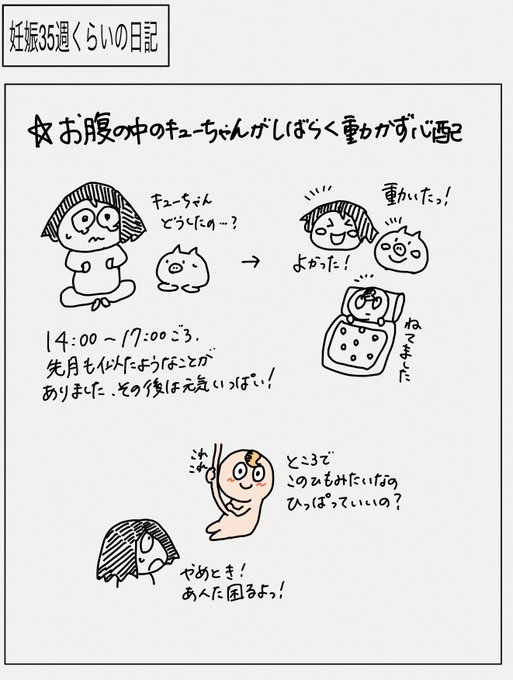 妊娠35週くらいの日記
☆お腹の中のキューちゃんがしばらく動かず心配
キューちゃん
どうしたの…?
→
動いたっ!
よかった!
ねてました
14:00〜17:00ごろ.
先月も似たようなことが
ありました、その後は元気いっぱい!
これ
これ
ところで
このひもみたいなの
ひっぱっていいの?
やめとき!
あんた困るよっ!